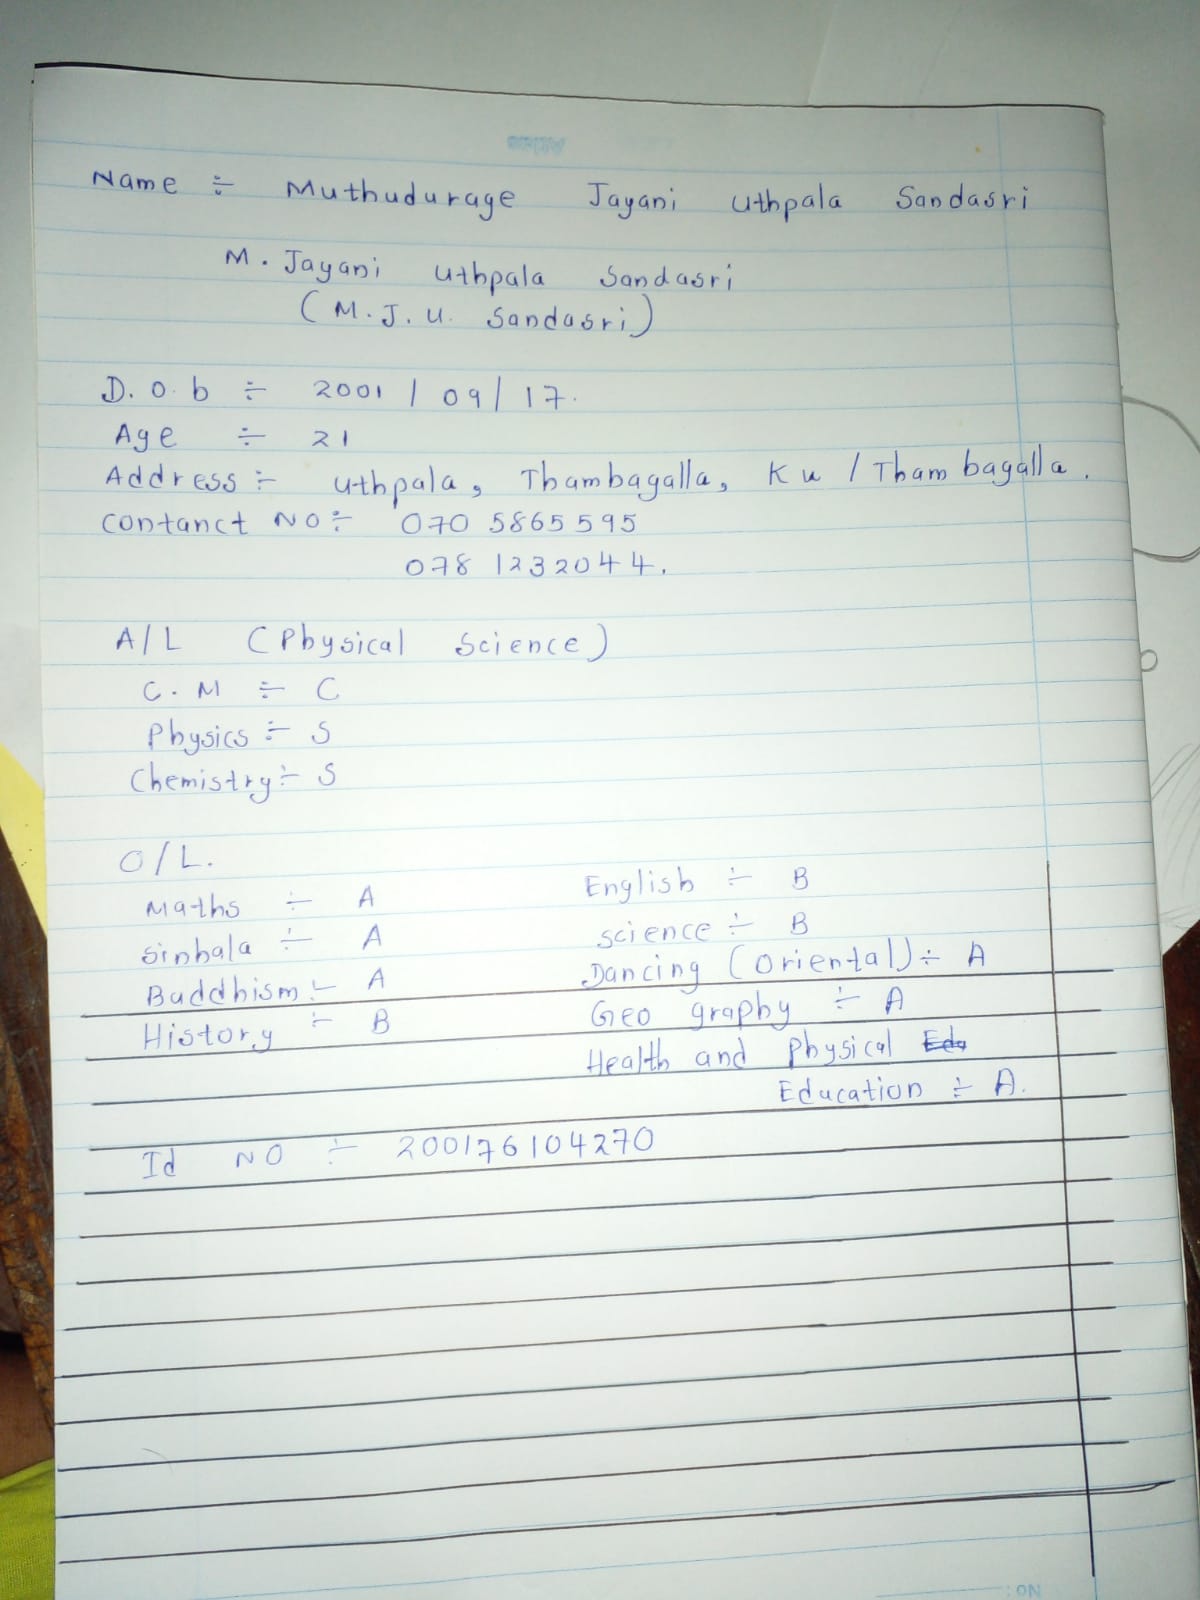 Name ÷ Muthudurage Jayani Uthpala Sandasri
M. Jayani Uthpala Sandasri
(M.J.U. Sandasri)
D.O.b ÷ 2001 / 09 / 17.
Age ÷ 21
Address ÷ Uthpala, Thambagalla, Ku / Thambagalla.
Contanct NO ÷ 070 5865595
078 1232044.
A/L (Physical Science)
C.M ÷ C
Physics ÷ S
Chemistry ÷ S
O/L.
Maths ÷ A
Sinhala ÷ A
Buddhism ÷ A
History ÷ B
English ÷ B
Science ÷ B
Dancing (Oriental) ÷ A
Geo graphy ÷ A
Health and Physical Edu
Education ÷ A.
Id NO ÷ 200176104270
NO: